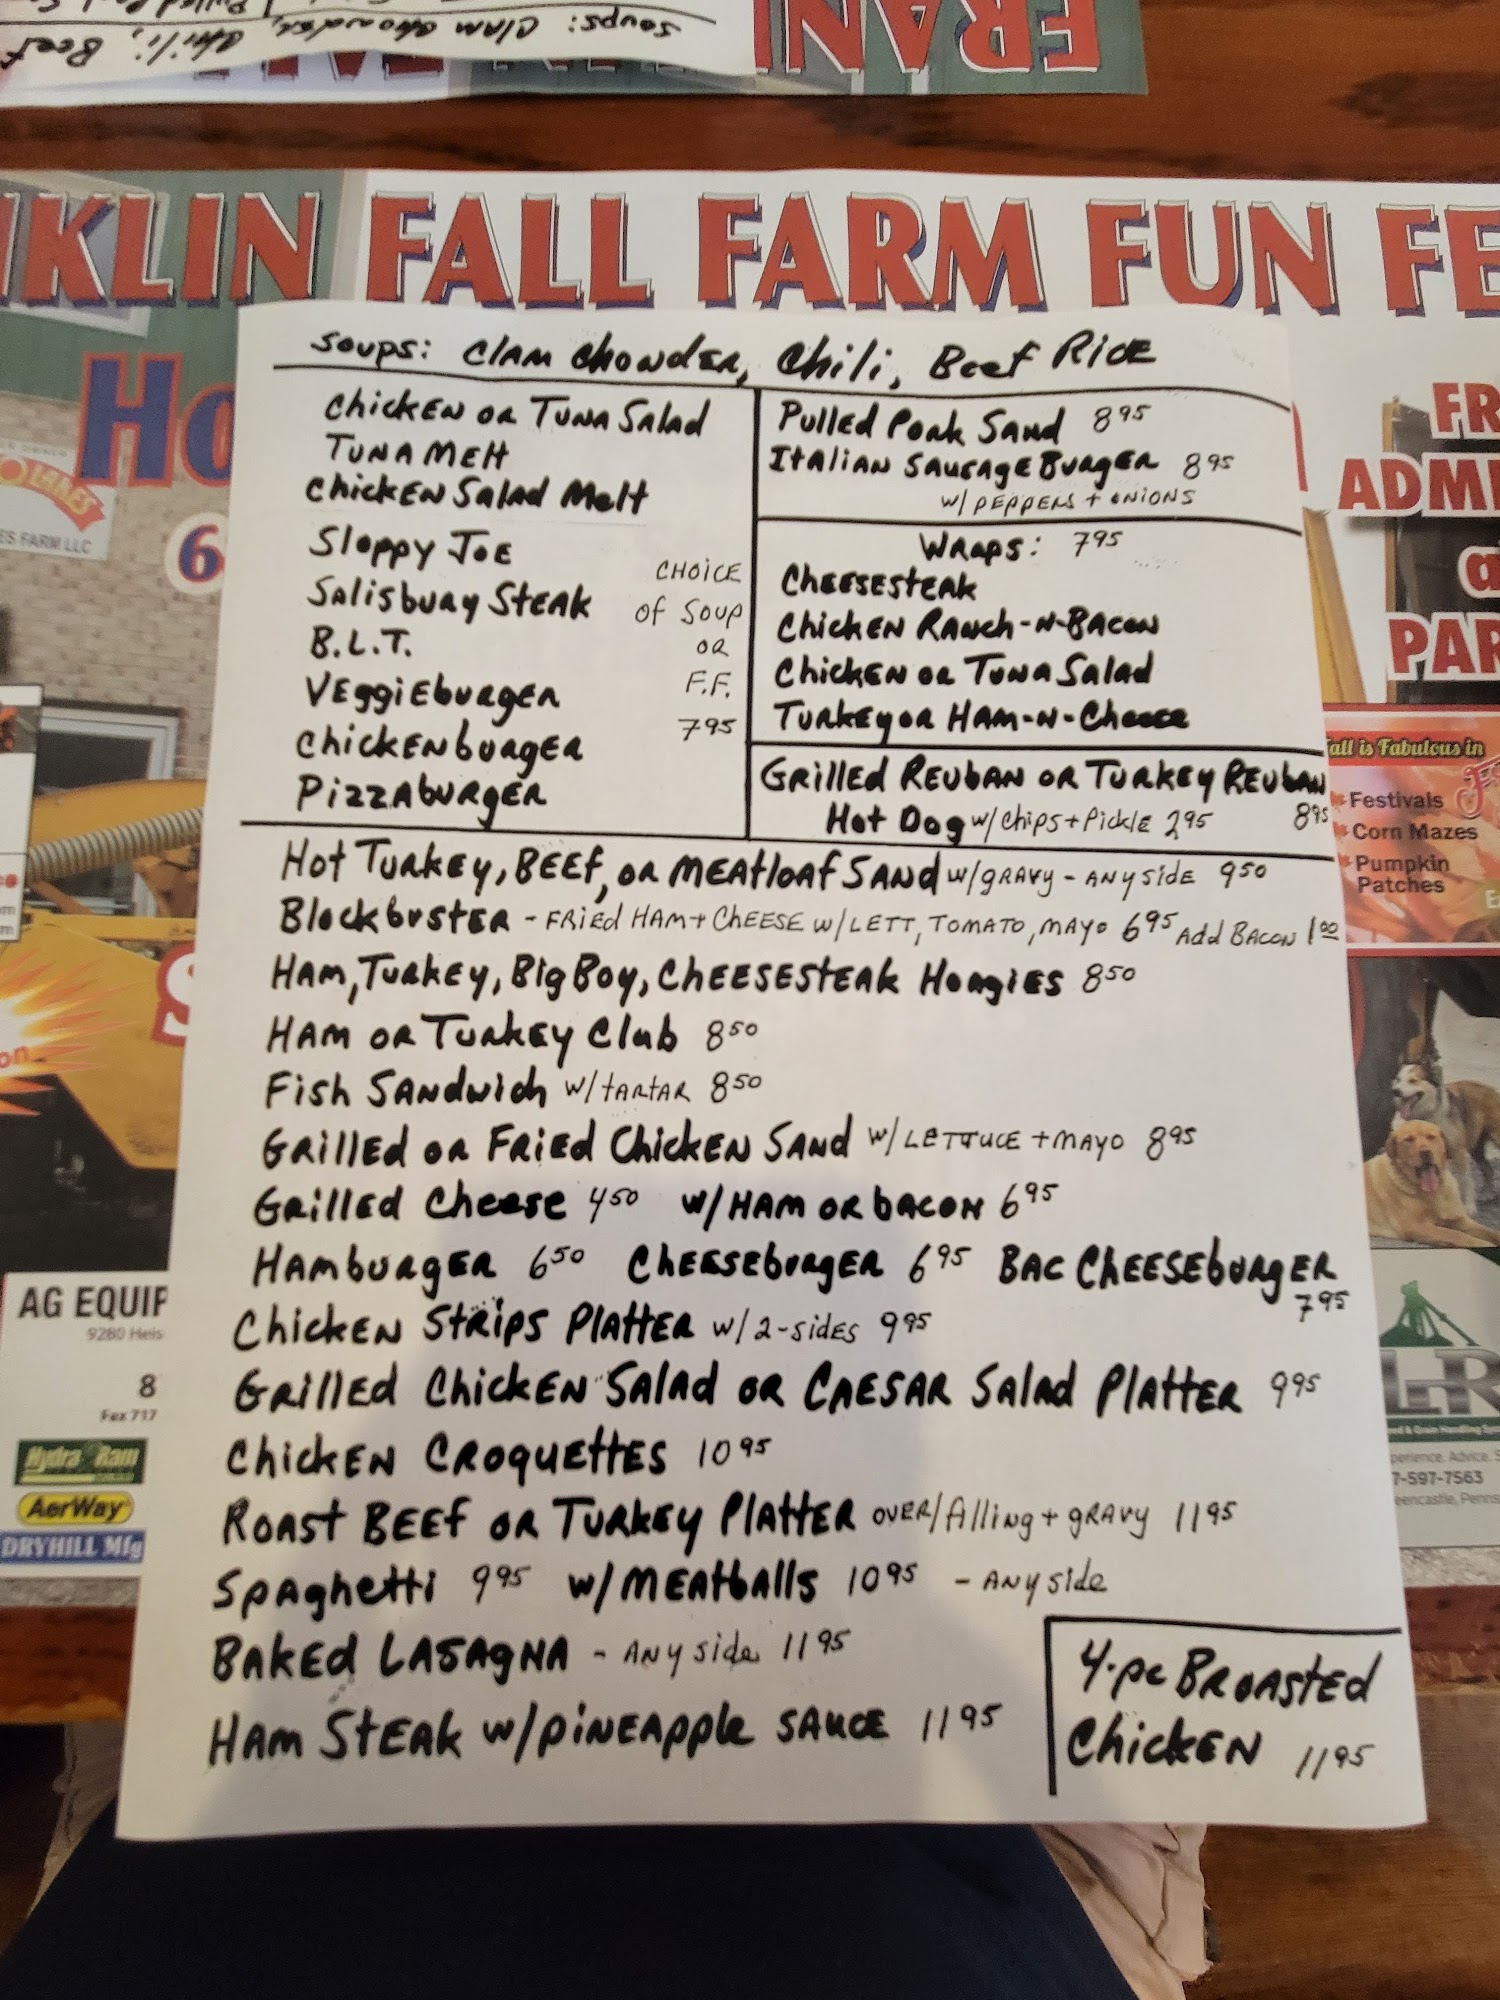 Soups: Clam Chowder, Chili, Beef
FRAN
KLIN FALL FARM FUN FE
Ho
6
ES FARM LLC
FR
ADMI
a
PAR
all is Fabulous in
Festivals
Corn Mazes
Pumpkin
Patches
Soups: Clam Chowder, Chili, Beef Rice
Chicken or Tuna Salad
Tuna Melt
Chicken Salad Melt
Sloppy Joe
Salisbury Steak
B.L.T.
Veggieburger
Chickenburger
Pizzaburger
CHOICE
of Soup
OR
F.F.
7 95
Pulled Pork Sand 8 95
Italian Sausage Burger 8 95
w/ PEPPERS + ONIONS
Wraps: 7 95
Cheesesteak
Chicken Ranch-N-Bacon
Chicken or Tuna Salad
Turkey or Ham-N-Cheese
Grilled Reuban or Turkey Reuban
8 95
Hot Dog w/ Chips + Pickle 2 95
Hot Turkey, Beef, or Meatloaf Sand w/ gravy - any side 9 50
Blockbuster - Fried Ham + Cheese w/ Lett, Tomato, Mayo 6 95 Add Bacon 1 00
Ham, Turkey, Big Boy, Cheesesteak Hoagies 8 50
Ham or Turkey Club 8 50
Fish Sandwich w/ tartar 8 50
Grilled or Fried Chicken Sand w/ Lettuce + Mayo 8 95
Grilled Cheese 4 50 w/ Ham or bacon 6 95
Hamburger 6 50 Cheeseburger 6 95 Bac Cheeseburger
7 95
Chicken Strips Platter w/ 2-sides 9 95
Grilled Chicken Salad or Caesar Salad Platter 9 95
Chicken Croquettes 10 95
Roast Beef or Turkey Platter over/filling + gravy 11 95
Spaghetti 9 95 w/ Meatballs 10 95 - Any side
Baked Lasagna - Any side 11 95
Ham Steak w/ pineapple sauce 11 95
4-pc Broasted
Chicken 11 95
S
on
AG EQUIP
9280 Heis
8
Fax 717
Hydra Ram
AerWay
DRYHILL Mfg
LR
7-597-7563
eencastle, Penns